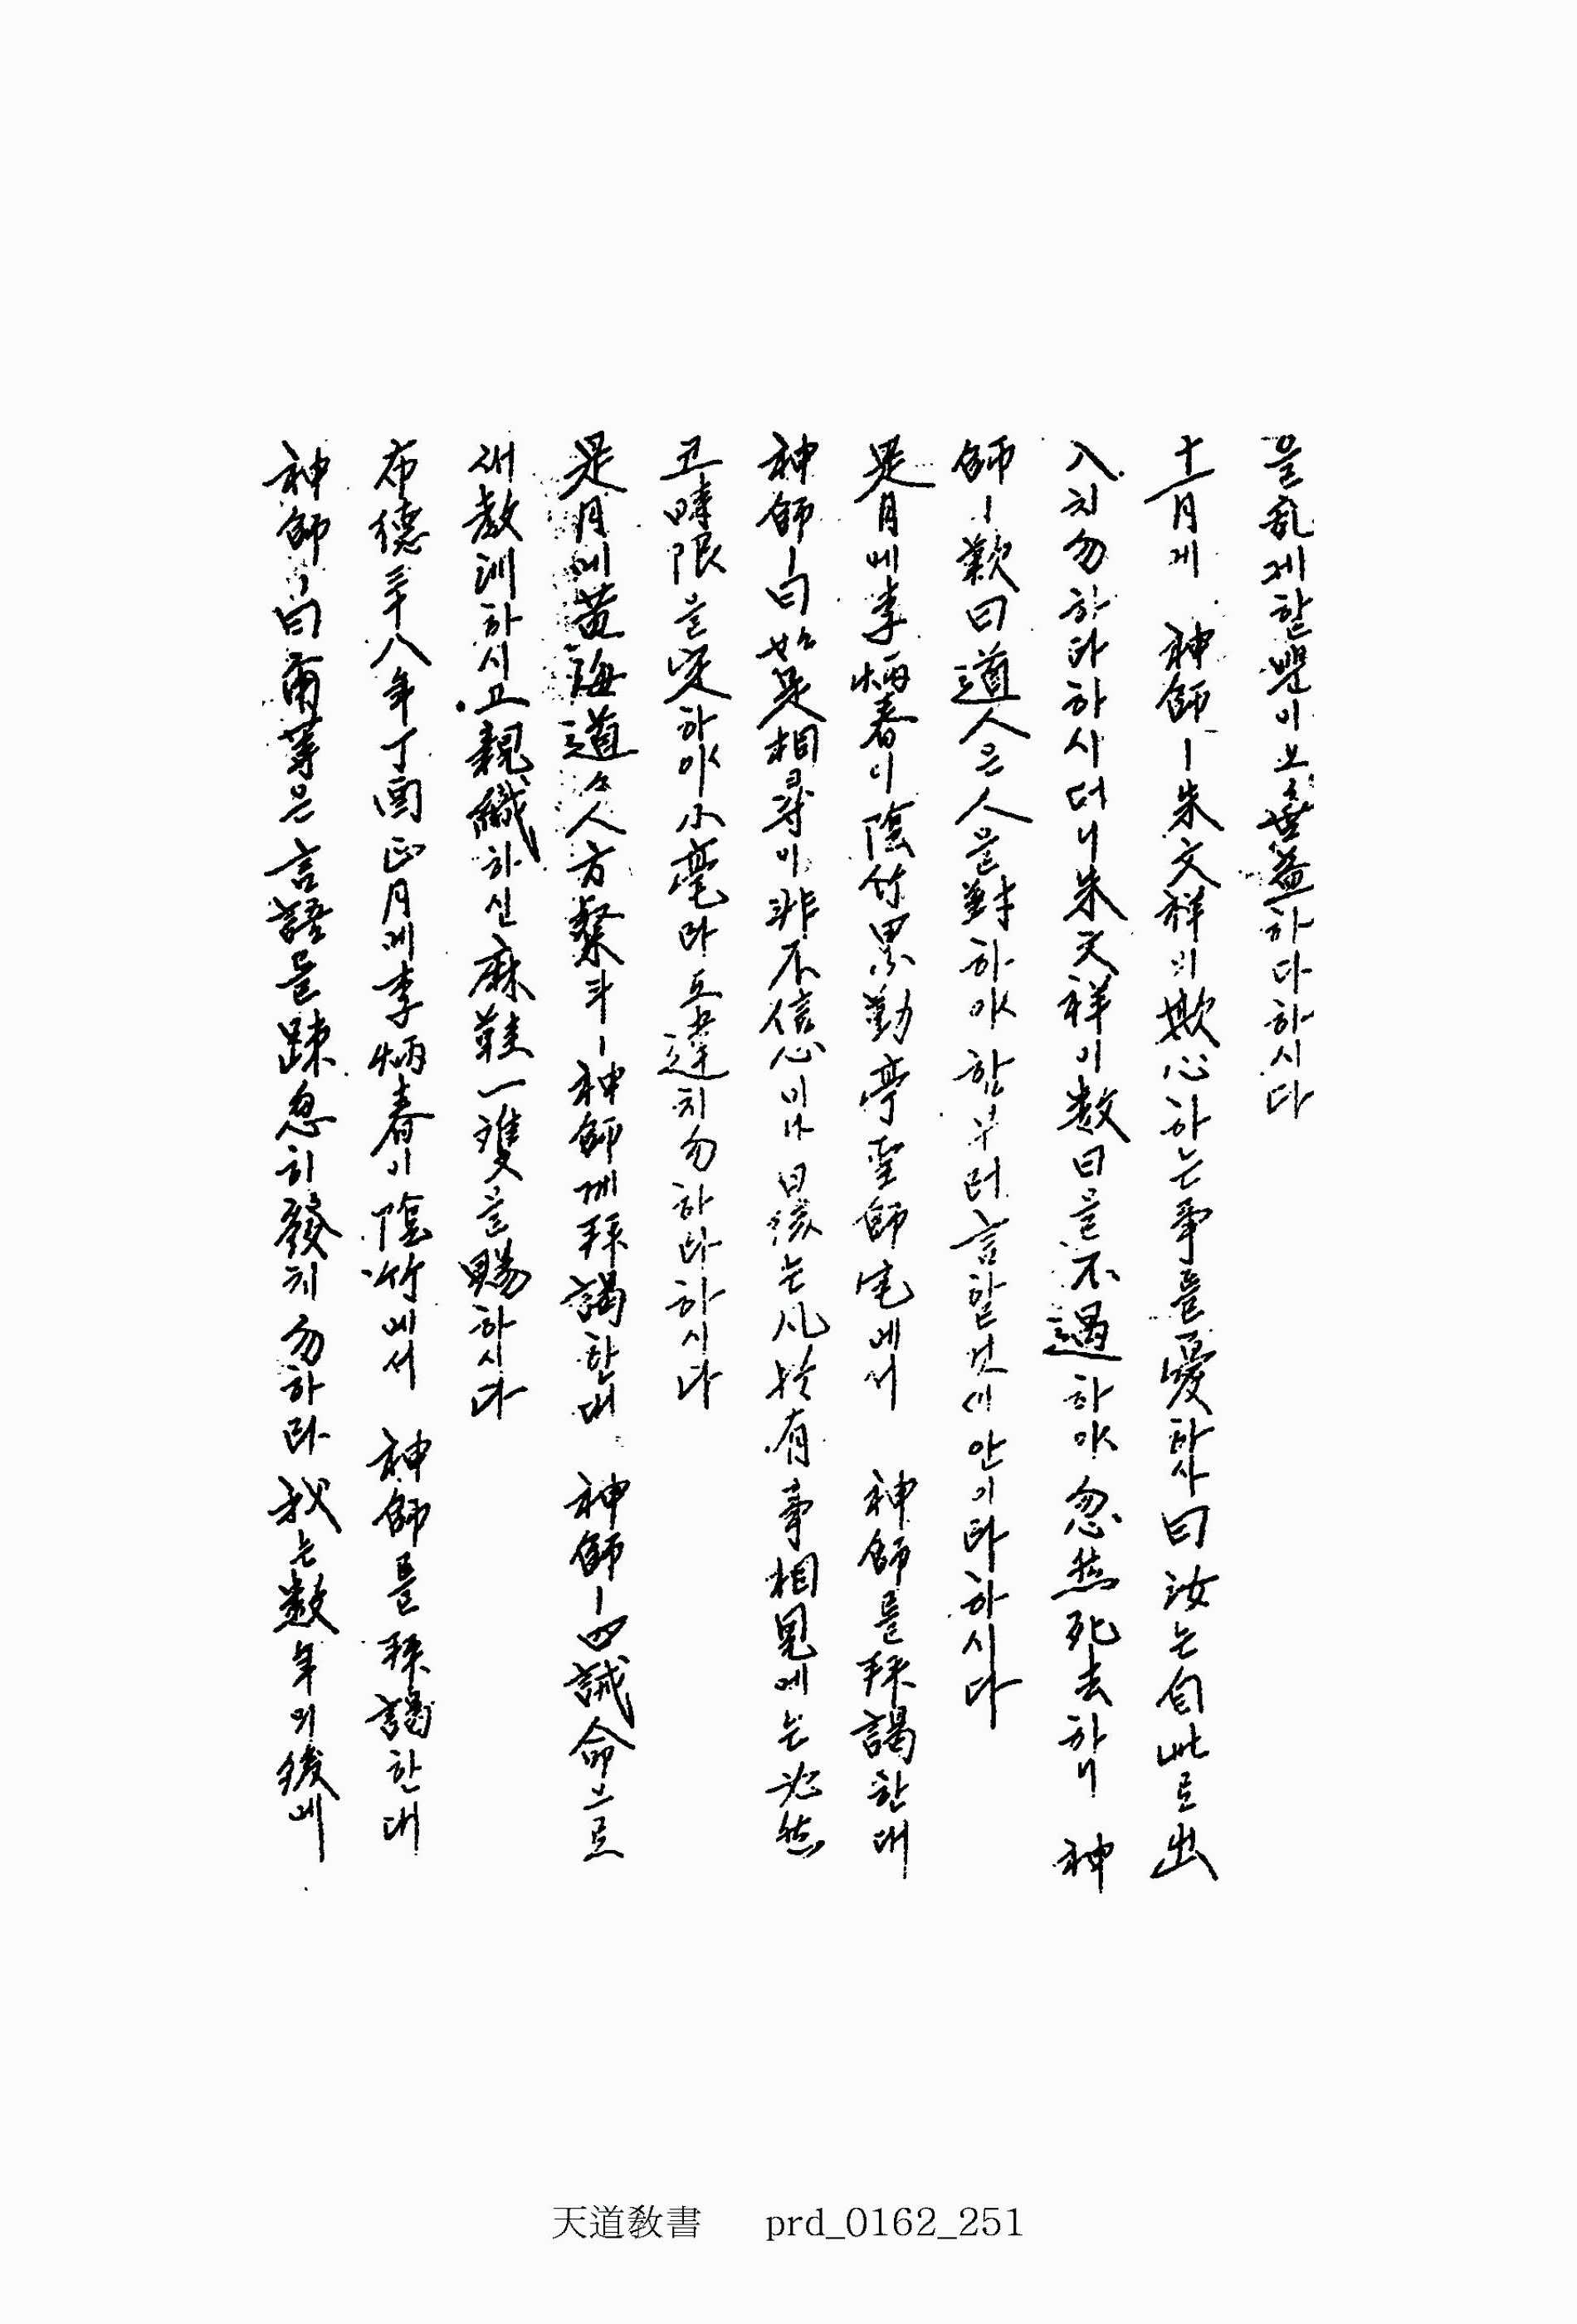 을乱케할뿐이고無益하다하시다
十一月에 神師ㅣ朱文祥의欺心하는事를憂하사曰汝는自此로出
入치勿하라하시더니朱文祥이数日을不過하야忽然死去하니 神
師ㅣ歎曰道人은人을對하야함부러言할것이안이라하시다
是月에李炳春이陰竹累勤亭聖師宅에서 神師를拜謁한대
神師ㅣ曰如是相尋이非不信心이나日後는凡於有事相見에는必然
코時限을定하야小毫라도違치勿하라하시다
是月에黃海道々人方粲斗ㅣ神師께拜謁한대 神師ㅣ四誡命으로
새敎訓하시고親織하신麻鞋一雙을賜하시다
布德三十八年丁酉正月에李炳春이陰竹에서 神師를拜謁한대
神師ㅣ曰爾等은言語를踈忽히發치勿하라我는数年의後에
天道敎書 prd_0162_251